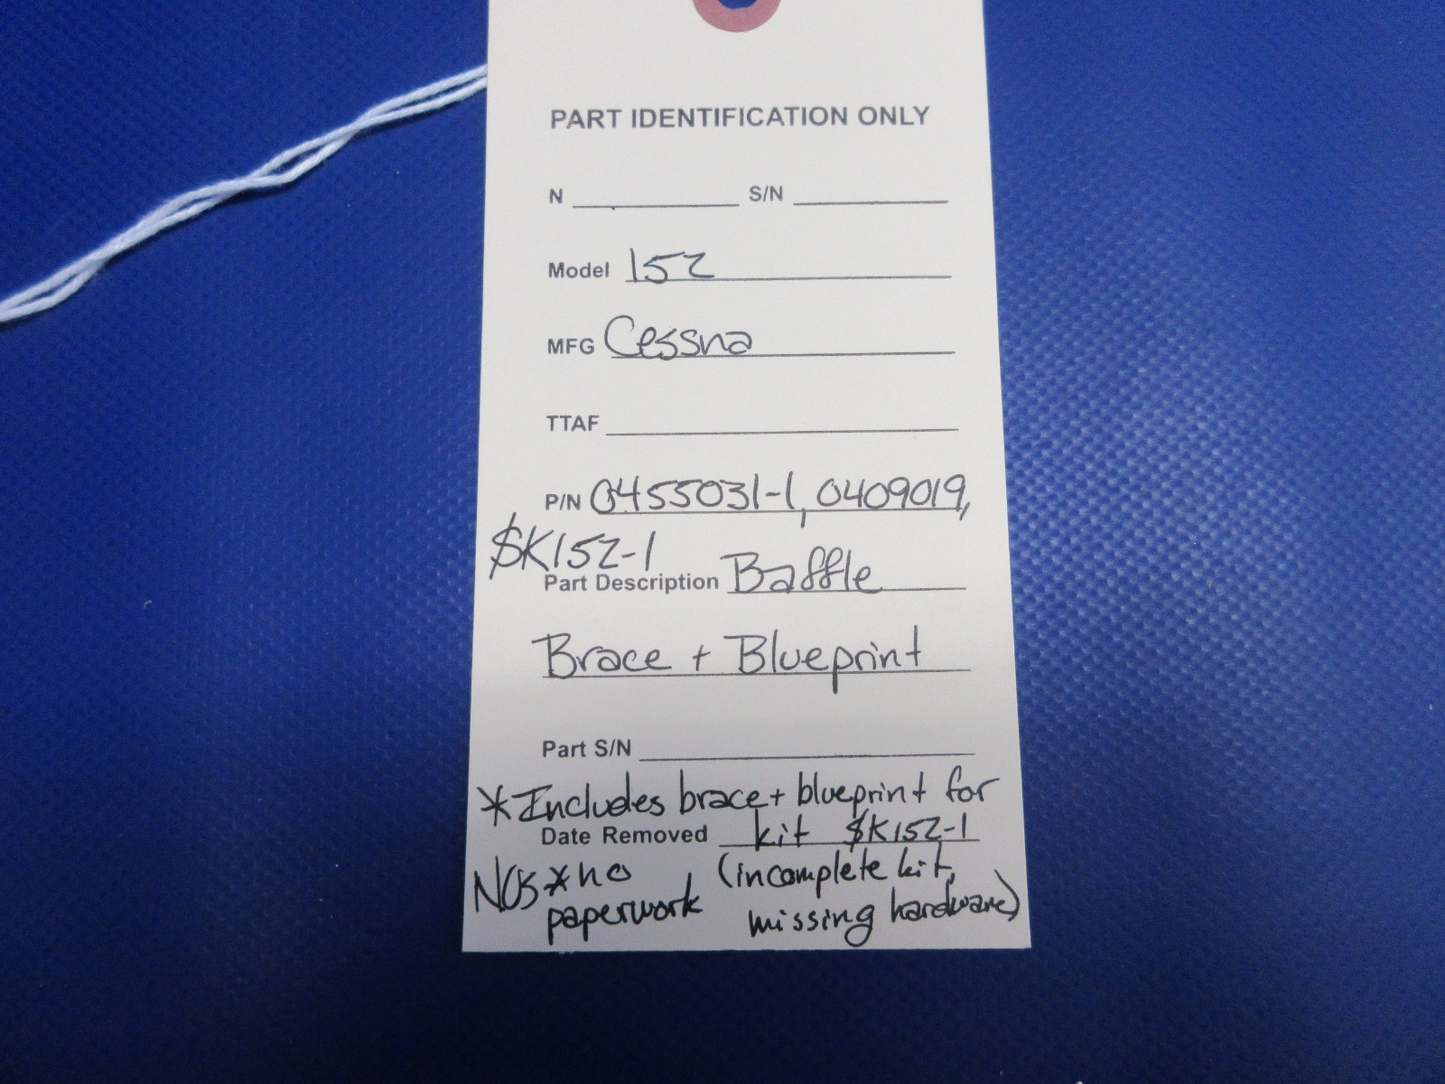 PART IDENTIFICATION ONLY
N S/N
Model 152
MFG Cessna
TTAF
P/N 0455031-1, 0409019,
SK152-1
Part Description Baffle
Brace + Blueprint
Part S/N
*Includes brace + blueprint for
Date Removed kit SK152-1
NOS *no paperwork
(incomplete kit,
missing hardware)